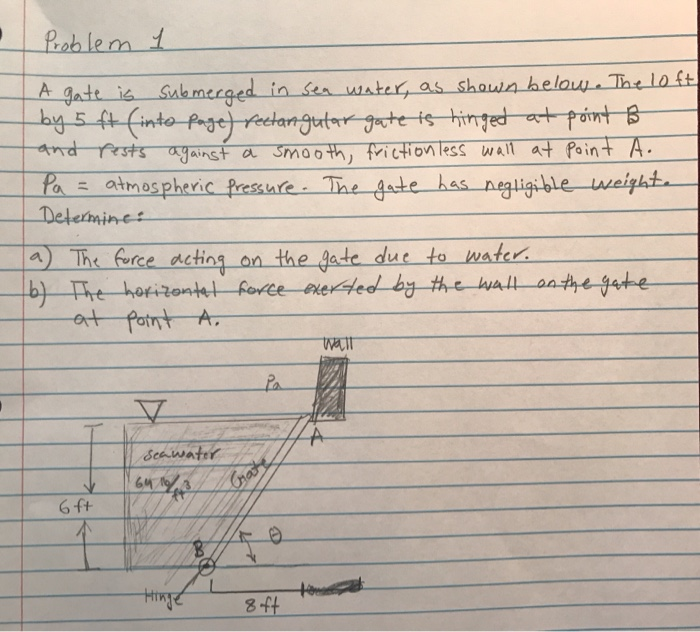 Problem 1
A gate is submerged in sea water, as shown below. The 10 ft
by 5 ft (into Page) rectangular gate is hinged at point B
and rests against a smooth, frictionless wall at Point A.
Pa = atmospheric Pressure. The gate has negligible weight.
Determine:
a) The force acting on the gate due to water.
b) The horizontal force exerted by the wall on the gate
at Point A.
Wall
Pa
A
seawater
64 lb/ft³
Gate
6 ft
θ
B
Hinge
8 ft